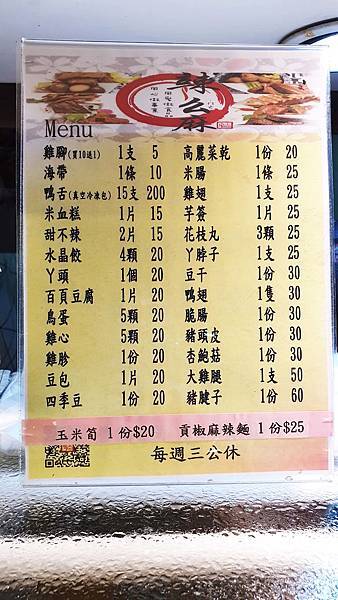 辣么麻
用愛做食品
用心做事業
Menu
雞腳(買10送1) 1支 5
海帶 1條 10
鴨舌(真空冷凍包) 15支 200
米血糕 1片 15
甜不辣 2片 15
水晶餃 4顆 20
丫頭 1個 20
百頁豆腐 1片 20
鳥蛋 5顆 20
雞心 5顆 20
雞胗 1份 20
豆包 1片 20
四季豆 1份 20
高麗菜乾 1份 20
米腸 1條 25
雞翅 1支 25
芋簽 1片 25
花枝丸 3顆 25
丫脖子 1支 25
豆干 1份 30
鴨翅 1隻 30
脆腸 1份 30
豬頭皮 1份 30
杏鮑菇 1份 30
大雞腿 1支 50
豬腱子 1份 60
玉米筍 1份$20 貢椒麻辣麵 1份$25
每週三公休